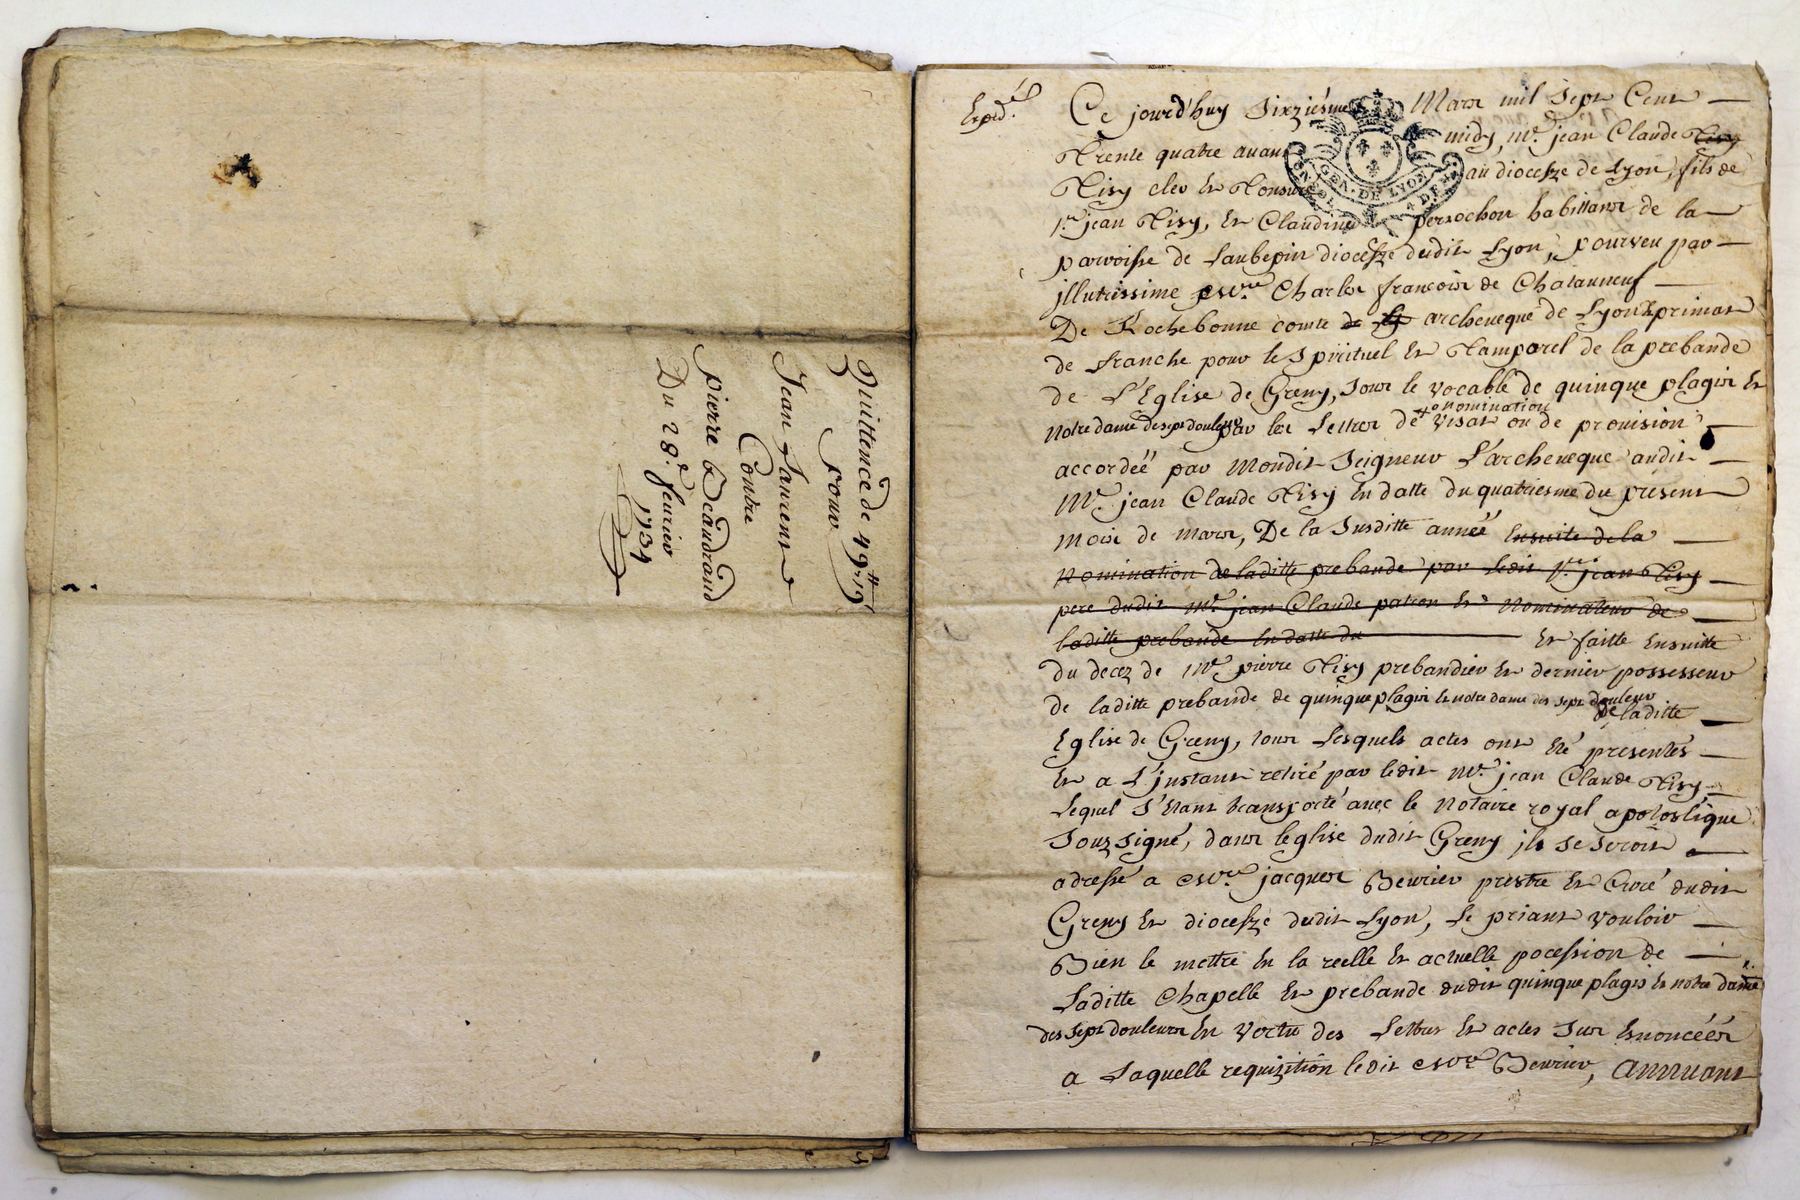 Quittence de 49 ₶ 19 s
pour
Jean Laurent
Contre
pierre Beaudrand
Du 28e. feurier
1734
Exped.é
Ce jourd'huy Sixziesme Mars mil Sept Cent
Trente quatre auant midy, Me. jean Claude Tisy
Tisy clerc et Tonsuré au diocesze de Lyon, fils de
sr. jean Tisy, et Claudine perrochon habittans de la
parroisse de Laubepin diocesze dudit Lyon, pourveu par
jllutrissime Charles francois de Chatauneuf
De Rochebonne comte de Ly archeueque de Lyon primat
de franche pour le Spirituel et Tamporel de la prebande
de L'Eglise de Greny, Sous le vocable de quinque plagis et
notre dame de sept douleurs par les Lettres de nomination visat ou de prouision
accordéé par Mondit Seigneur L'archeueque audit
Me. jean Claude Tisy En datte du quatriesme du present
mois de mars, De la Susditte année Ensuite de la
Nomination de laditte prebande par Ledit sr. jean Tisy
pere dudit Me. jean Claude patron et Nominateur de
laditte prebande En datte du et faitte Ensuitte
du decez de Me. pierre Tisy prebandier et dernier possesseur
de laditte prebande de quinque plagis et notre dame des sept douleur
de laditte
Eglise de Greny, tous Lesquels actes ont été presentés
et a L'jnstant retiré par ledit Me. jean Claude Tisy,
Lequel S'etant transporté auec le Notaire royal apolostique
Souz Signé, dans leglise dudit Greny jls se seroit
adressé a jacques Beurier prestre et Curé dudit
Greny et diocesze dudit Lyon, Le priant vouloir
Bien le mettre En la reelle et actuelle pocession de
Laditte Chapelle et prebande dudit quinque plagis et notre dame
des Sept douleurs En Vertu des Lettres et actes Sus Enoncéés
a Laquelle requizition ledit Beurier, annuant
GEN. DE LYON